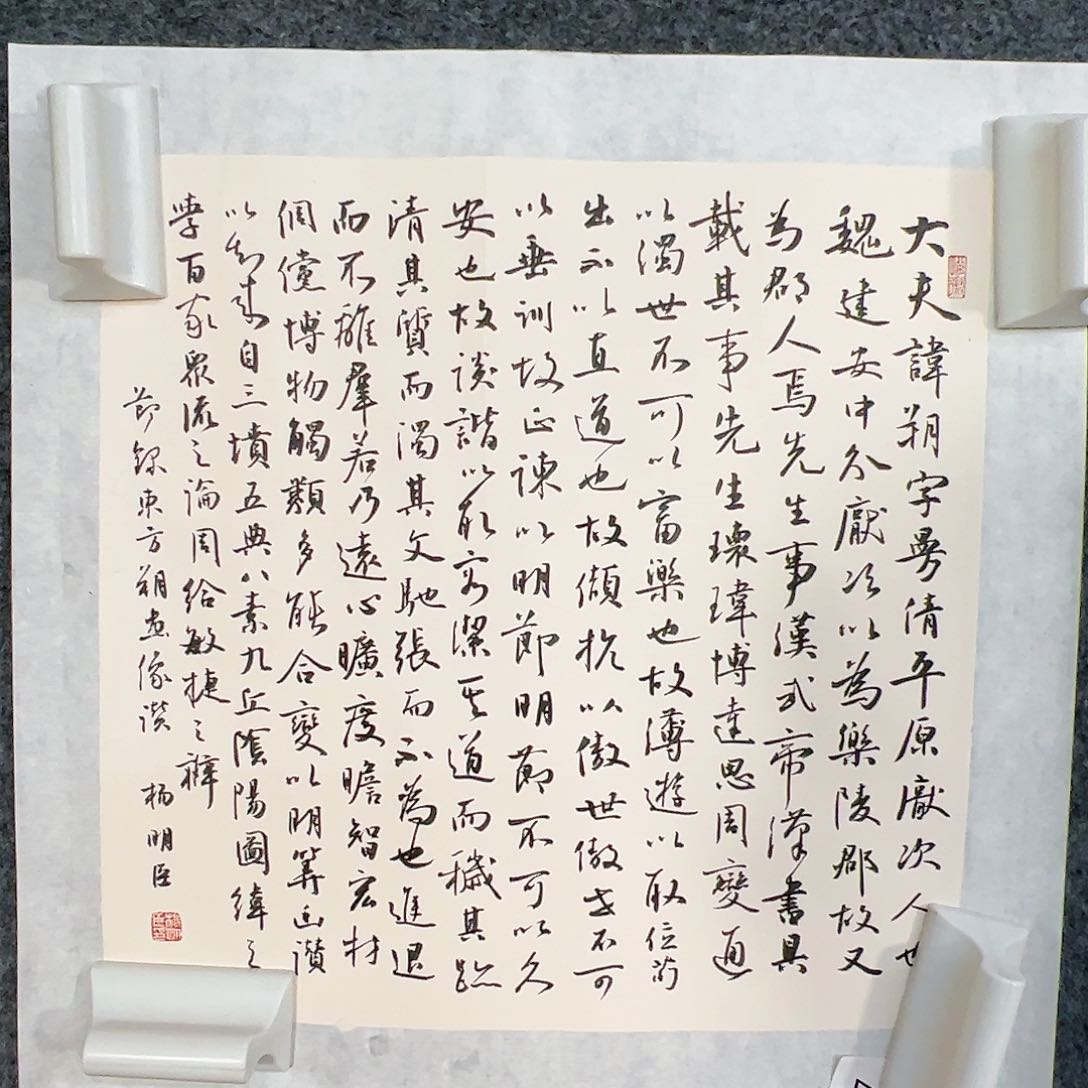 大夫諱朔字曼倩平原厭次人也
魏建安中分厭次以為樂陵郡故又
為郡人焉先生事漢武帝漢書具
載其事先生瓌瑋博達思周變通
以濁世不可以富樂也故薄遊以取位苟
出不以直道也故傾抗以傲世傲世不可
以垂訓故正諫以明節明節不可以久
安也故談諧以取容潔其道而穢其跡
清其質而濁其文馳張而不為也進退
而不離羣若乃遠心曠度瞻智宏材
倜儻博物觸類多能合變以明筭幽讚
以知來自三墳五典八素九丘陰陽圖緯之
學百家眾流之論周給敏捷之辯
節錄東方朔畫像讚 楊明臣